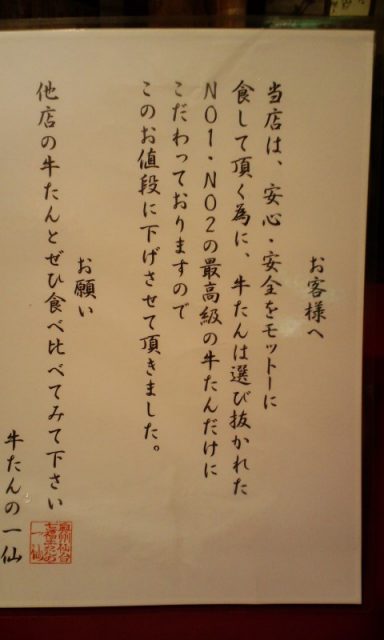 お客様へ
当店は、安心・安全をモットーに
食して頂く為に、牛たんは選び抜かれた
NO1・NO2の最高級の牛たんだけに
こだわっておりますので
このお値段に下げさせて頂きました。
お願い
他店の牛たんとぜひ食べ比べてみて下さい
牛たんの一仙